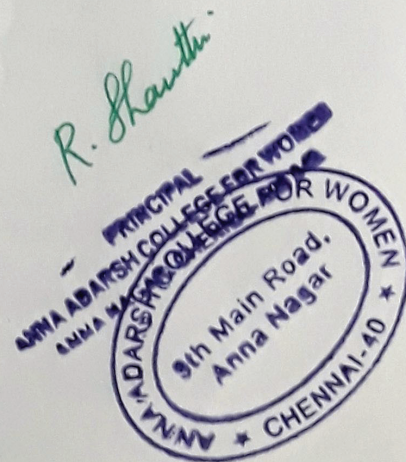 R. Shanthi
PRINCIPAL
ANNA ADARSH COLLEGE FOR WOMEN
ANNA
ANNA ADARSH COLLEGE FOR WOMEN
9th Main Road,
Anna Nagar
★ CHENNAI-40 ★